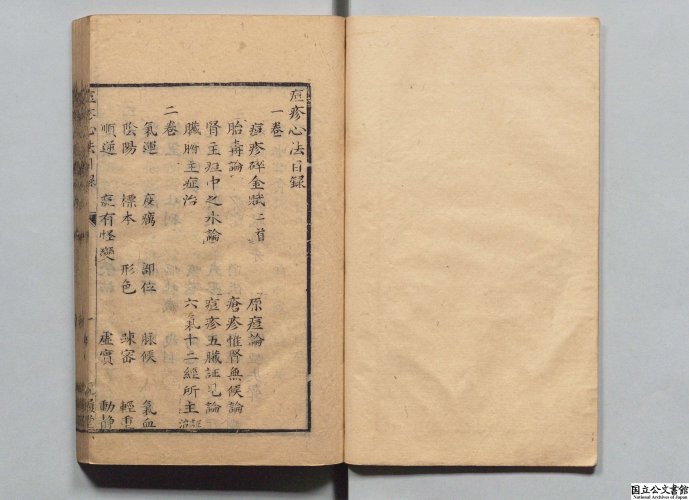 痘疹心法目録
一卷
痘疹碎金賦二首 原痘論
胎毒論 瘡疹惟腎無候論
腎主痘中之水論 痘疹五臟証見論
臟腑主症治 六氣十二經所主証治
二卷
氣運 疫癘 部位 脉候 氣血
陰陽 標本 形色 疎密 輕重
順逆 痘有怪變 虛實 動靜
痘疹心法目録
国立公文書館
National Archives of Japan